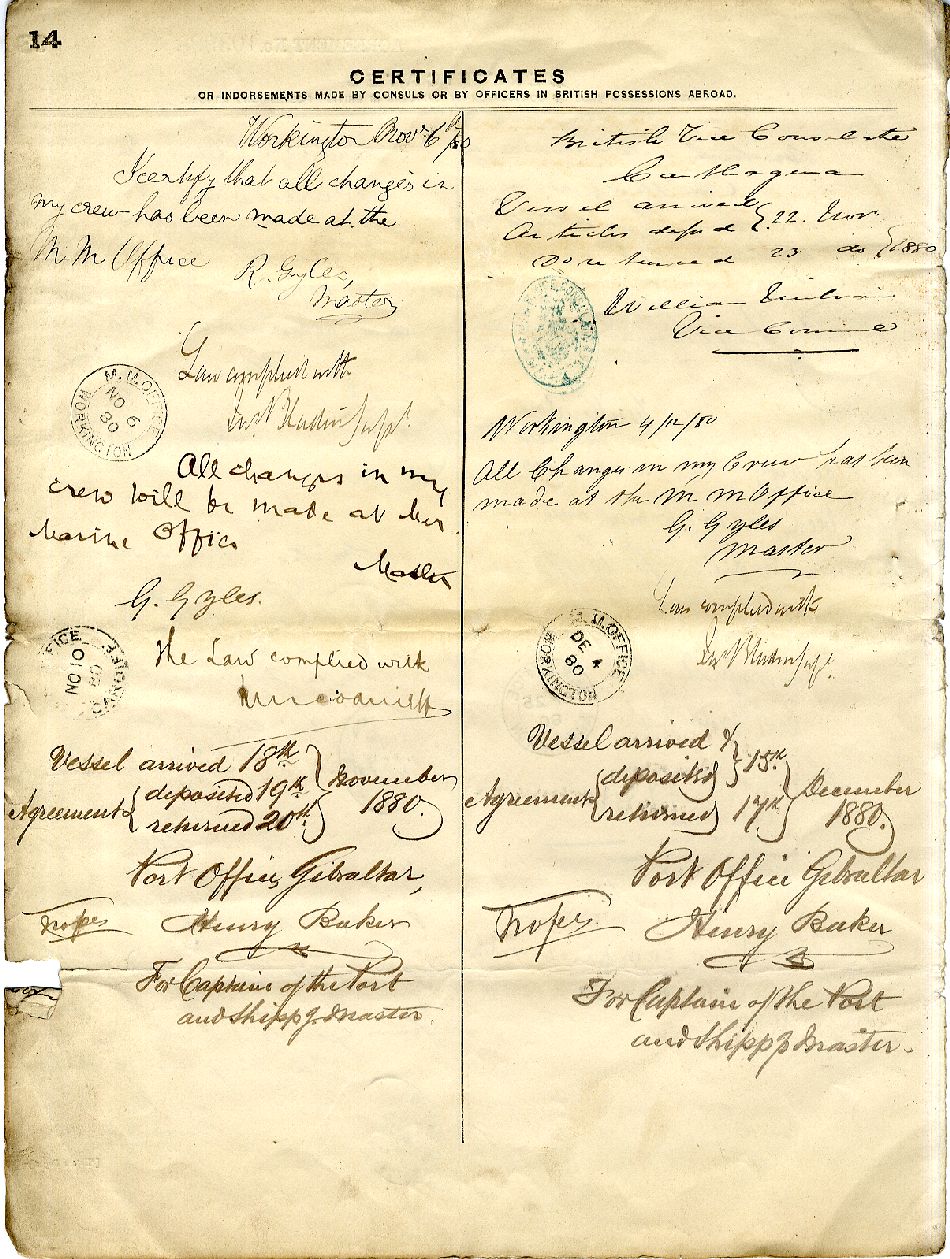 14
CERTIFICATES
OR INDORSEMENTS MADE BY CONSULS OR BY OFFICERS IN BRITISH POSSESSIONS ABROAD.
Workington Novr 6th/80
I certify that all changes in
my crew has been made at the
M. M. Office
R. Gyles,
Master
Law complied with
Supt.
M. M. OFFICE
NO 6
80
WORKINGTON
All changes in my
crew will be made at
Marine Office
Master
G. Gyles.
FICE
NO 10
80
The Law complied with
Vessel arrived 18th
Agreement { deposited 19th } November
returned 20th } 1880.
Port Office, Gibraltar,
Henry Baker
For Captain of the Port
and Shippg Master.
British Vice Consulate
Carthagena
Vessel arrived
Articles depsd } 22. Novr
Do returned 23 do } 1880
William
Vice Consul
Workington 4/12/80
All Changes in my Crew has been
made at the M. M Office
G. Gyles
Master
Law complied with
Supt.
M. M. OFFICE
DE 4
80
WORKINGTON
Vessel arrived &
Agreement { deposited } 15th
returned } 17th } December 1880.
Port Office Gibraltar
Henry Baker
For Captain of the Port
and Shippg Master.